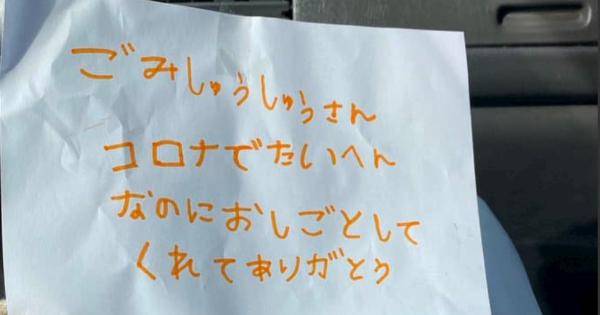 ごみしゅうしゅうさん
コロナでたいへん
なのにおしごとして
くれてありがとう